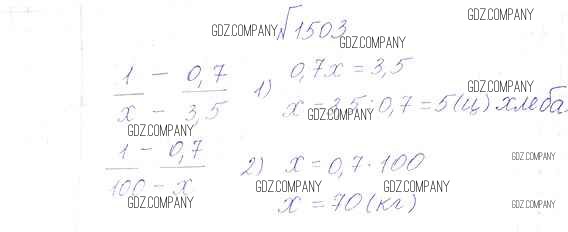 GDZ.COMPANY
GDZ.COMPANY №1503
GDZ.COMPANY
1 - 0,7 1) 0,7x = 3,5
x - 3,5 x = 3,5 : 0,7 = 5 (ц) хлеба.
GDZ.COMPANY
GDZ.COMPANY
GDZ.COMPANY
1 - 0,7 2) x = 0,7 · 100
100 - x x = 70 (кг)
GDZ.COMPANY
GDZ.COMPANY GDZ.COMPANY
GDZ.COMPANY GDZ.COMPANY